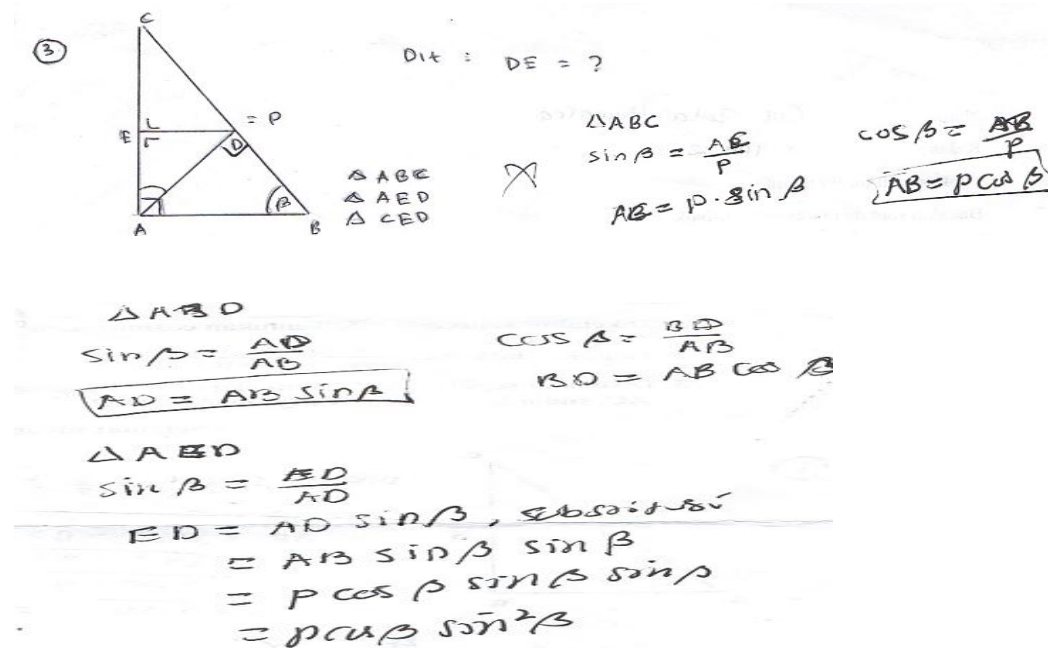 3
C
Dit : DE = ?
E
= P
D
β
A
B
△ ABC
△ AED
△ CED
△ABC
sin β = AC/P
AC = p · sin β
cos β = AB/P
AB = p cos β
△ ABD
sin β = AD/AB
AD = AB sin β
cos β = BD/AB
BD = AB cos β
△ AED
sin β = ED/AD
ED = AD sin β, subsitusi
= AB sin β sin β
= p cos β sin β sin β
= p cos β sin²β